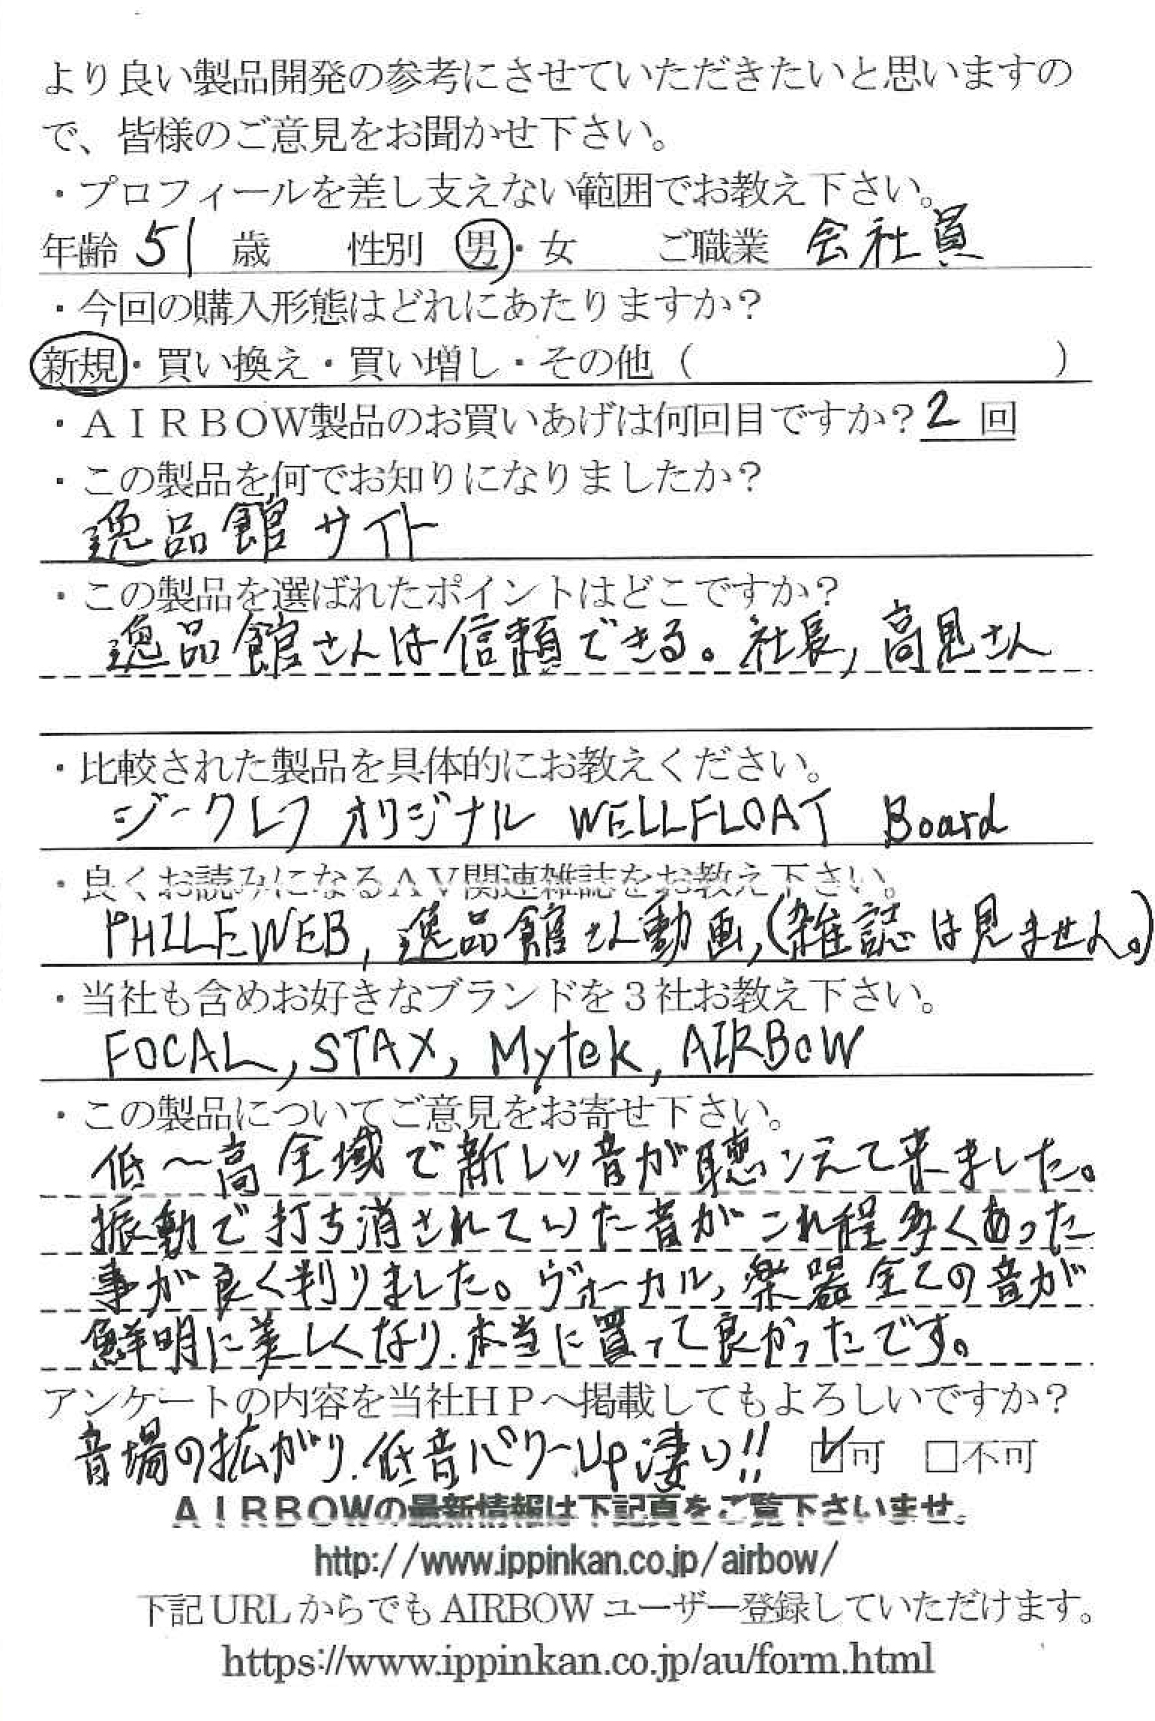 より良い製品開発の参考にさせていただきたいと思いますの
で、皆様のご意見をお聞かせ下さい。
・プロフィールを差し支えない範囲でお教え下さい。
年齢 51 歳 性別 男・女 ご職業 会社員
・今回の購入形態はどれにあたりますか？
新規・買い換え・買い増し・その他（ ）
・ＡＩＲＢＯＷ製品のお買いあげは何回目ですか？2 回
・この製品を何でお知りになりましたか？
逸品館サイト
・この製品を選ばれたポイントはどこですか？
逸品館さんは信頼できる。社長, 高見さん
・比較された製品を具体的にお教えください。
ジークレフ オリジナル WELLFLOAT Board
・良くお読みになるＡＶ関連雑誌をお教え下さい。
PHILEWEB, 逸品館さん動画,(雑誌は見ません。)
・当社も含めお好きなブランドを３社お教え下さい。
FOCAL, STAX, Mytek, AIRBOW
・この製品についてご意見をお寄せ下さい。
低〜高全域で新しい音が聴こえて来ました。
振動で打ち消されていた音がこれ程多くあった
事が良く判りました。ヴォーカル, 楽器全ての音が
鮮明に美しくなり、本当に買って良かったです。
アンケートの内容を当社ＨＰへ掲載してもよろしいですか？
音場の拡がり、低音パワーUp凄い!! ☑可 □不可
ＡＩＲＢＯＷの最新情報は下記頁をご覧下さいませ。
http://www.ippinkan.co.jp/airbow/
下記URLからでもAIRBOWユーザー登録していただけます。
https://www.ippinkan.co.jp/au/form.html